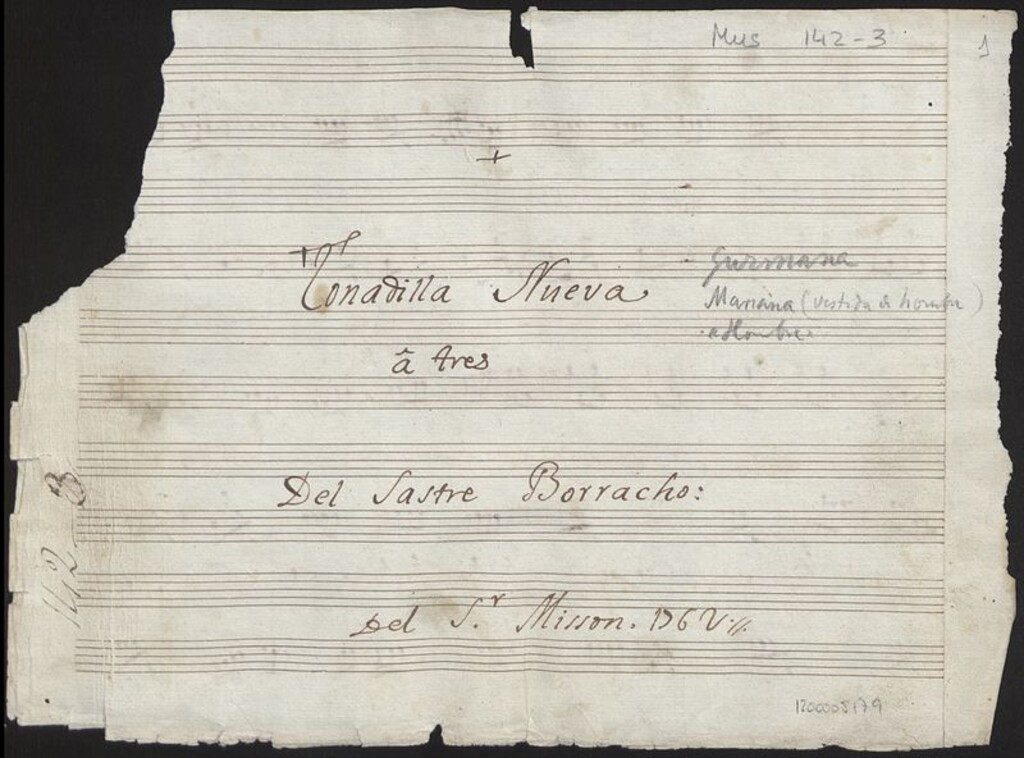 Mus 142-3
1
+
Tonadilla Nueva
â tres
Guzmana
Mariana (vestida de hombre)
Hombre
Del Sastre Borracho:
Del S.r Misson. 1762.//.
142 3
1200005179